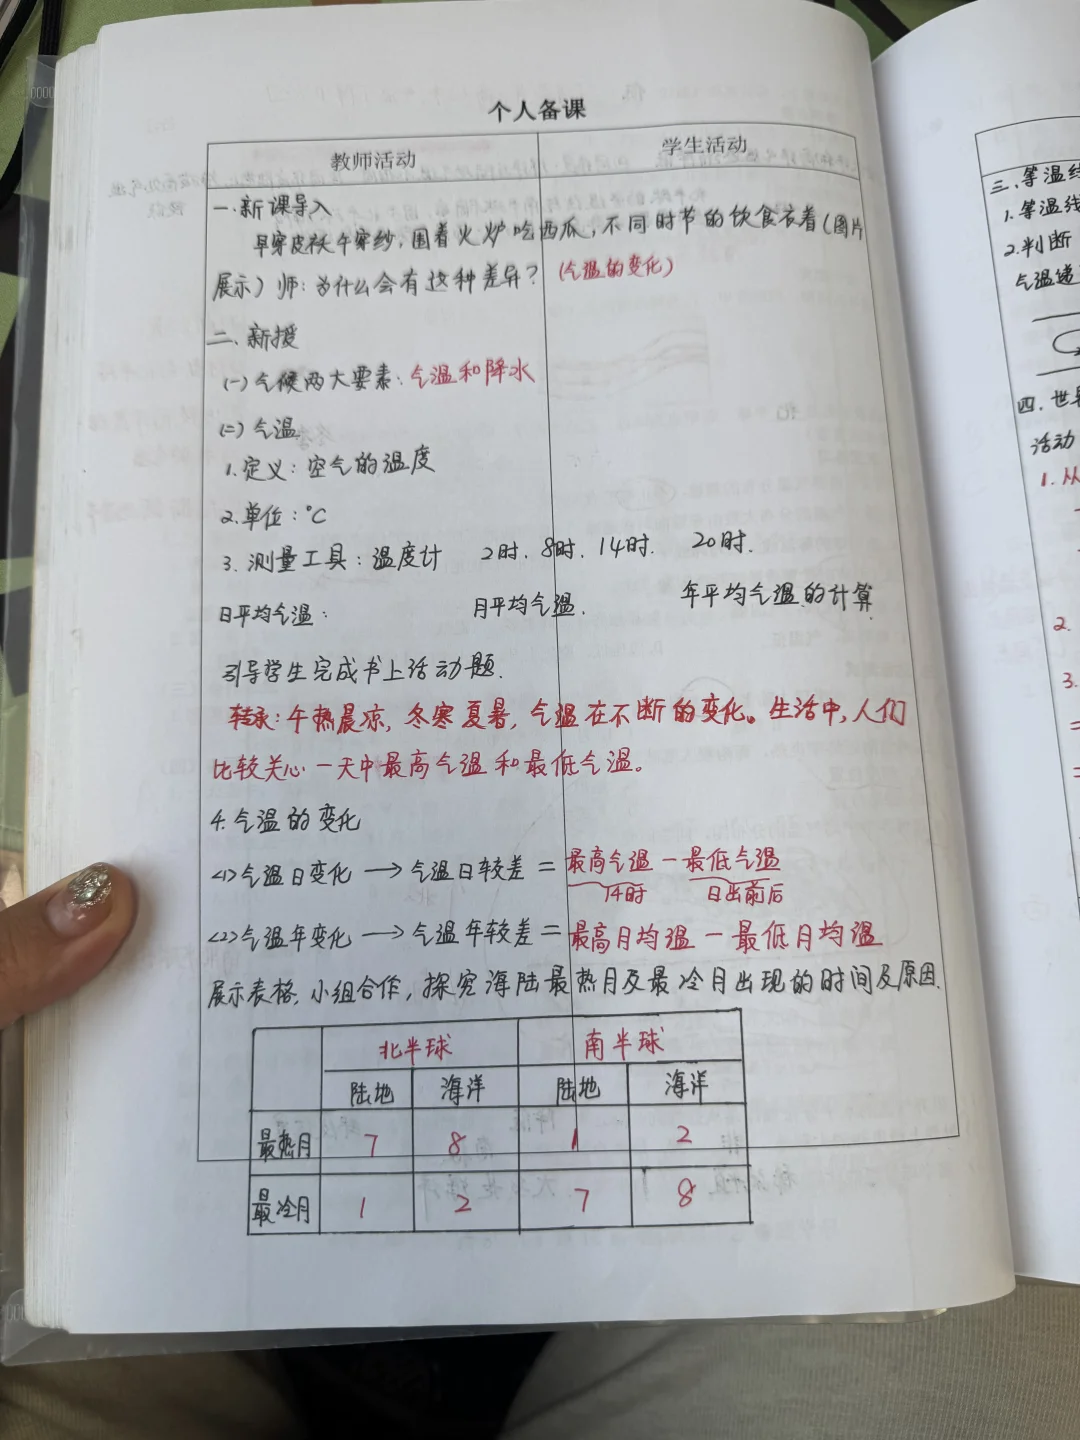 个人备课
教师活动 学生活动
一.新课导入
早穿皮袄午穿纱,围着火炉吃西瓜,不同时节的饮食衣着(图片
展示) 师:为什么会有这种差异? (气温的变化)
二、新授
(一)气候两大要素:气温和降水
(二)气温
1.定义:空气的温度
2.单位:℃
3.测量工具:温度计 2时.8时.14时. 20时.
日平均气温: 月平均气温. 年平均气温.的计算
引导学生完成书上活动题.
转承:午热晨凉,冬寒夏暑,气温在不断的变化。生活中,人们
比较关心一天中最高气温和最低气温。
4.气温的变化
<1>气温日变化→气温日较差=最高气温-最低气温
14时 日出前后
<2>气温年变化→气温年较差=最高月均温-最低月均温
展示表格,小组合作,探究海陆最热月及最冷月出现的时间及原因.
北半球 南半球
陆地 海洋 陆地 海洋
最热月 7 8 1 2
最冷月 1 2 7 8
三.等温线
1.等温线
2.判断
气温递
四.世
活动
1.从
2.
3.